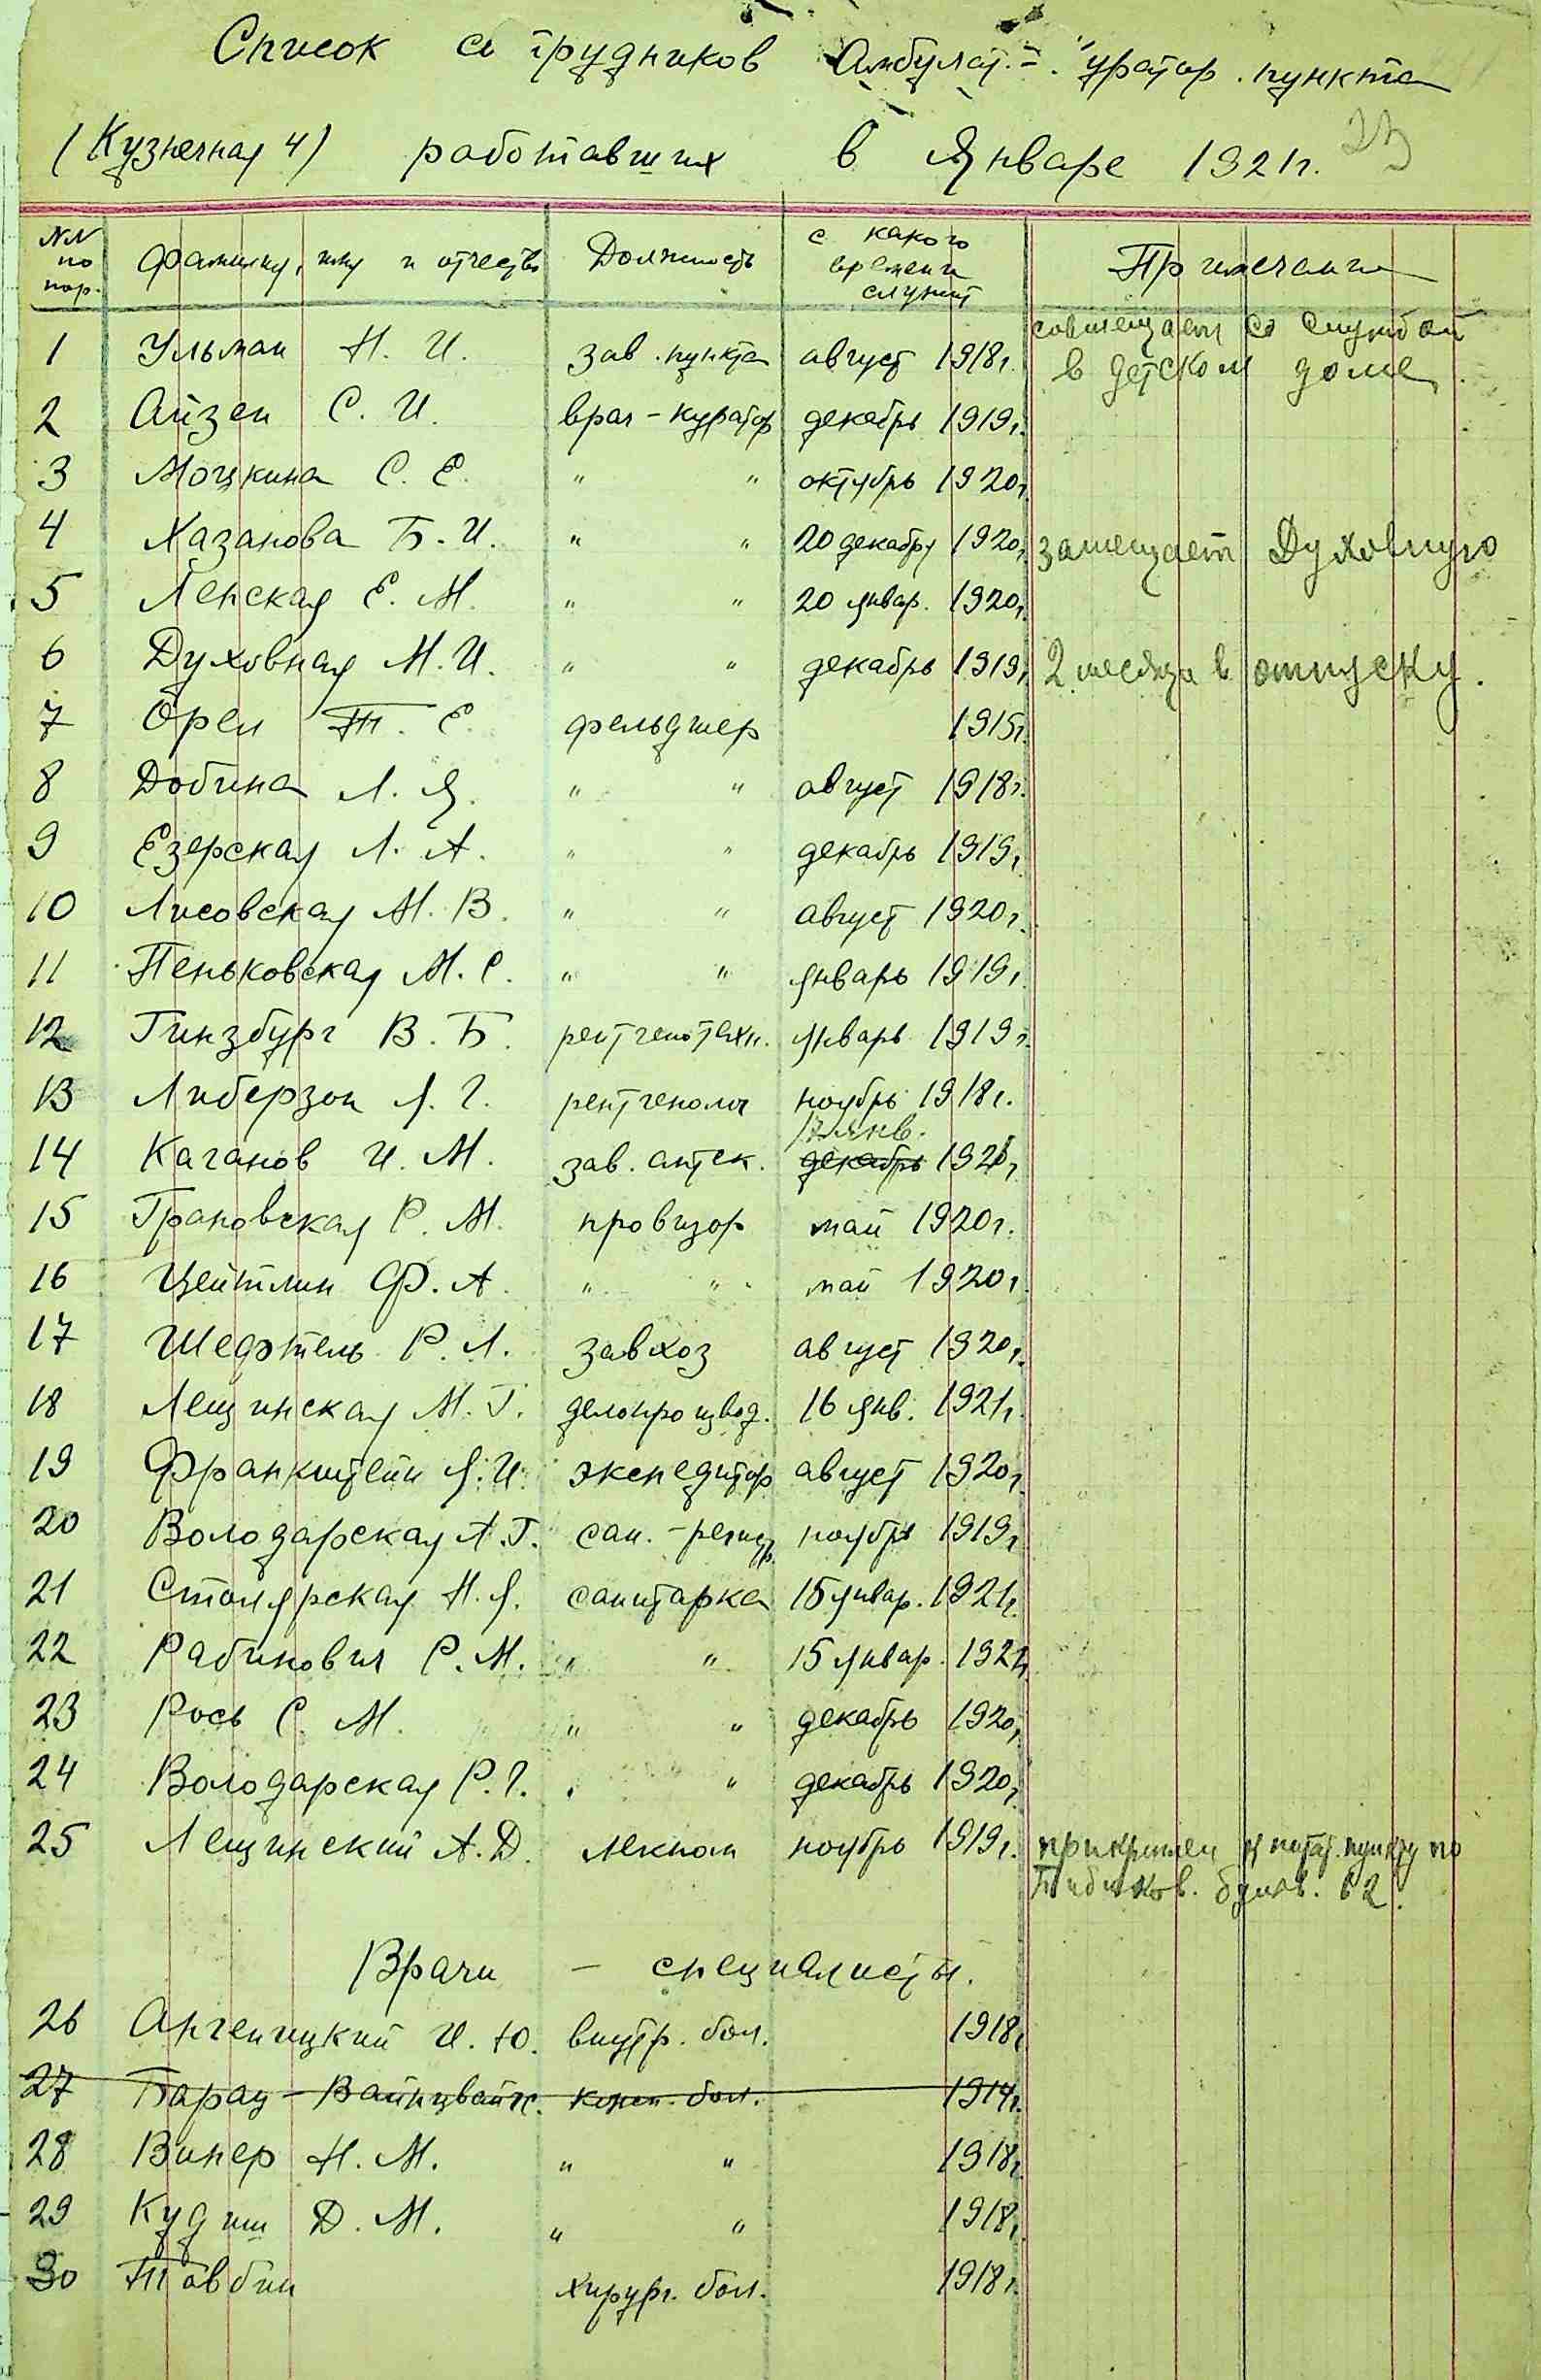 Список сотрудников Амбулат.-куратор. пункта
(Кузнечная 4) работавших в Январе 1921г.
23
№№ по пор. Фамилия, имя и отчество Должность с какого времени служит Примечание
1 Ульман Н. И. зав. пункта август 1918г. совмещает со службой в детском доме
2 Айзен С. И. врач-куратор декабрь 1919г.
3 Моцкина С. Е. " " октябрь 1920г.
4 Хазанова Б. И. " " 20 декабря 1920г. замещает Духовную
5 Ленская Е. М. " " 20 январ. 1920г.
6 Духовная М. И. " " декабрь 1919г. 2 месяца в отпуску.
7 Орел Т. Е. фельдшер 1915г.
8 Добина Л. Я. " " август 1918г.
9 Езерская Л. А. " " декабрь 1919г.
10 Лисовская М. В. " " август 1920г.
11 Пеньковская М. С. " " январь 1919г.
12 Гинзбург В. Б. рентгенотехн. январь 1919г.
13 Либерзон Я. Г. рентгенолог ноябрь 1918г.
17 янв.
14 Каганов И. М. зав. аптек. декабрь 1921г.
15 Грановская Р. М. провизор май 1920г.
16 Цейтлин Ф. А. " " май 1920г.
17 Шефтель Р. Л. завхоз август 1920г.
18 Лещинская М. Г. делопроизвод. 16 янв. 1921г.
19 Франкштейн Я. И. экспедитор август 1920г.
20 Володарская А. Г. сан.-регистр. ноябрь 1919г.
21 Столярская Н. Я. санитарка 15 январ. 1921г.
22 Рабинович Р. М. " " 15 январ. 1921г.
23 Рось С. М. " " декабрь 1920г.
24 Володарская Р. Г. " " декабрь 1920г.
25 Лещинский А. Д. лекпом ноябрь 1919г. прикреплен к питат. пункту по
Бибиков. бульв. 62.
Врачи - специалисты.
26 Ангеницкий И. Ю. внутр. бол. 1918г.
27 Барац-Вайнцвайг. бол. 1914г.
28 Винер Н. М. " " 1918г.
29 Кудиш Д. М. " " 1918г.
30 Тавбин хирург. бол. 1918г.